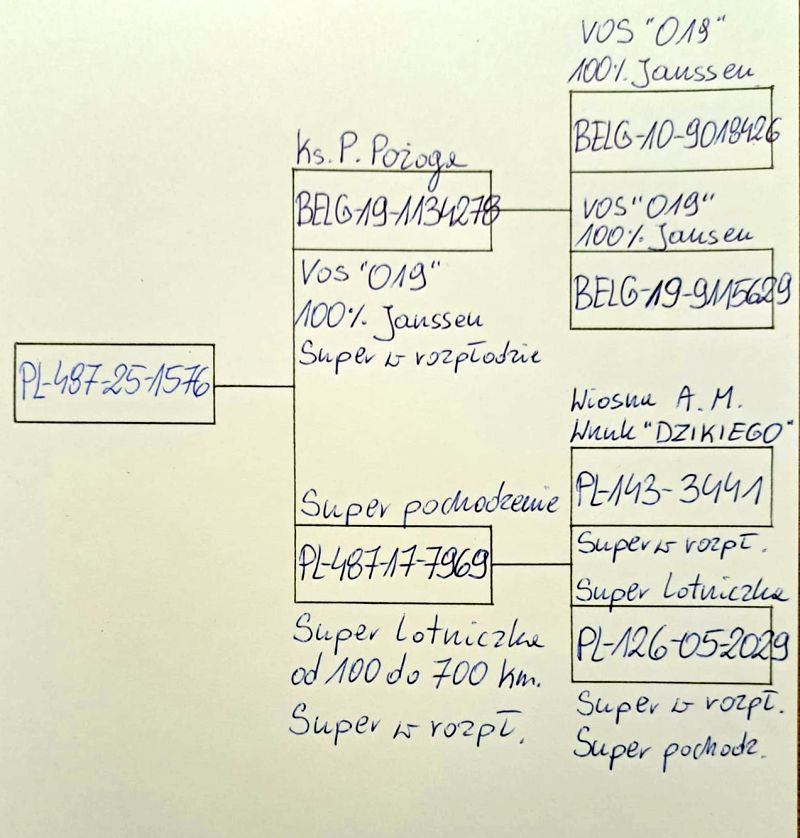 PL-487-25-1576
Ks. P. Pożoga
BELG-19-1134278
Vos "019"
100% Janssen
Super w rozpłodzie
Super pochodzenie
PL-487-17-7969
Super Lotniczka
od 100 do 700 km.
Super w rozpł.
VOS "019"
100% Janssen
BELG-10-9018426
VOS "019"
100% Jansen
BELG-19-9115629
Wiosna A. M.
Wnuk "DZIKIEGO"
PL-143-3441
Super w rozpł.
Super Lotniczka
PL-126-05-2029
Super w rozpł.
Super pochodz.